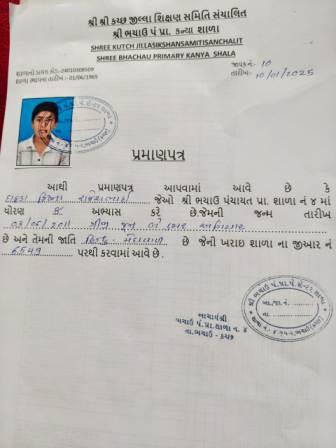 શ્રી શ્રી કચ્છ જીલ્લા શિક્ષણ સમિતિ સંચાલિત
શ્રી ભચાઉ પં પ્રા. કન્યા શાળા
SHREE KUTCH JILLASIKSHANSAMITISANCHALIT
SHREE BHACHAU PRIMARY KANYA SHALA
જાવક નં: 10
તારીખ: 10/01/2025
પ્રમાણપત્ર
આથી પ્રમાણપત્ર આપવામાં આવે છે કે
જેઓ શ્રી ભચાઉ પંચાયત પ્રા. શાળા નં ૪ માં
ધોરણ અભ્યાસ કરે છે.જેમની જન્મ તારીખ
03/06/2011
છે અને તેમની જાતિ હિન્દુ- છે જેની ખરાઇ શાળા ના જીઆર નં
6549 પરથી કરવામાં આવે છે.
આચાર્યશ્રી
ભચાઉ પં.પ્રા.શાળા નં. ૪
તા.ભચાઉ - કચ્છ